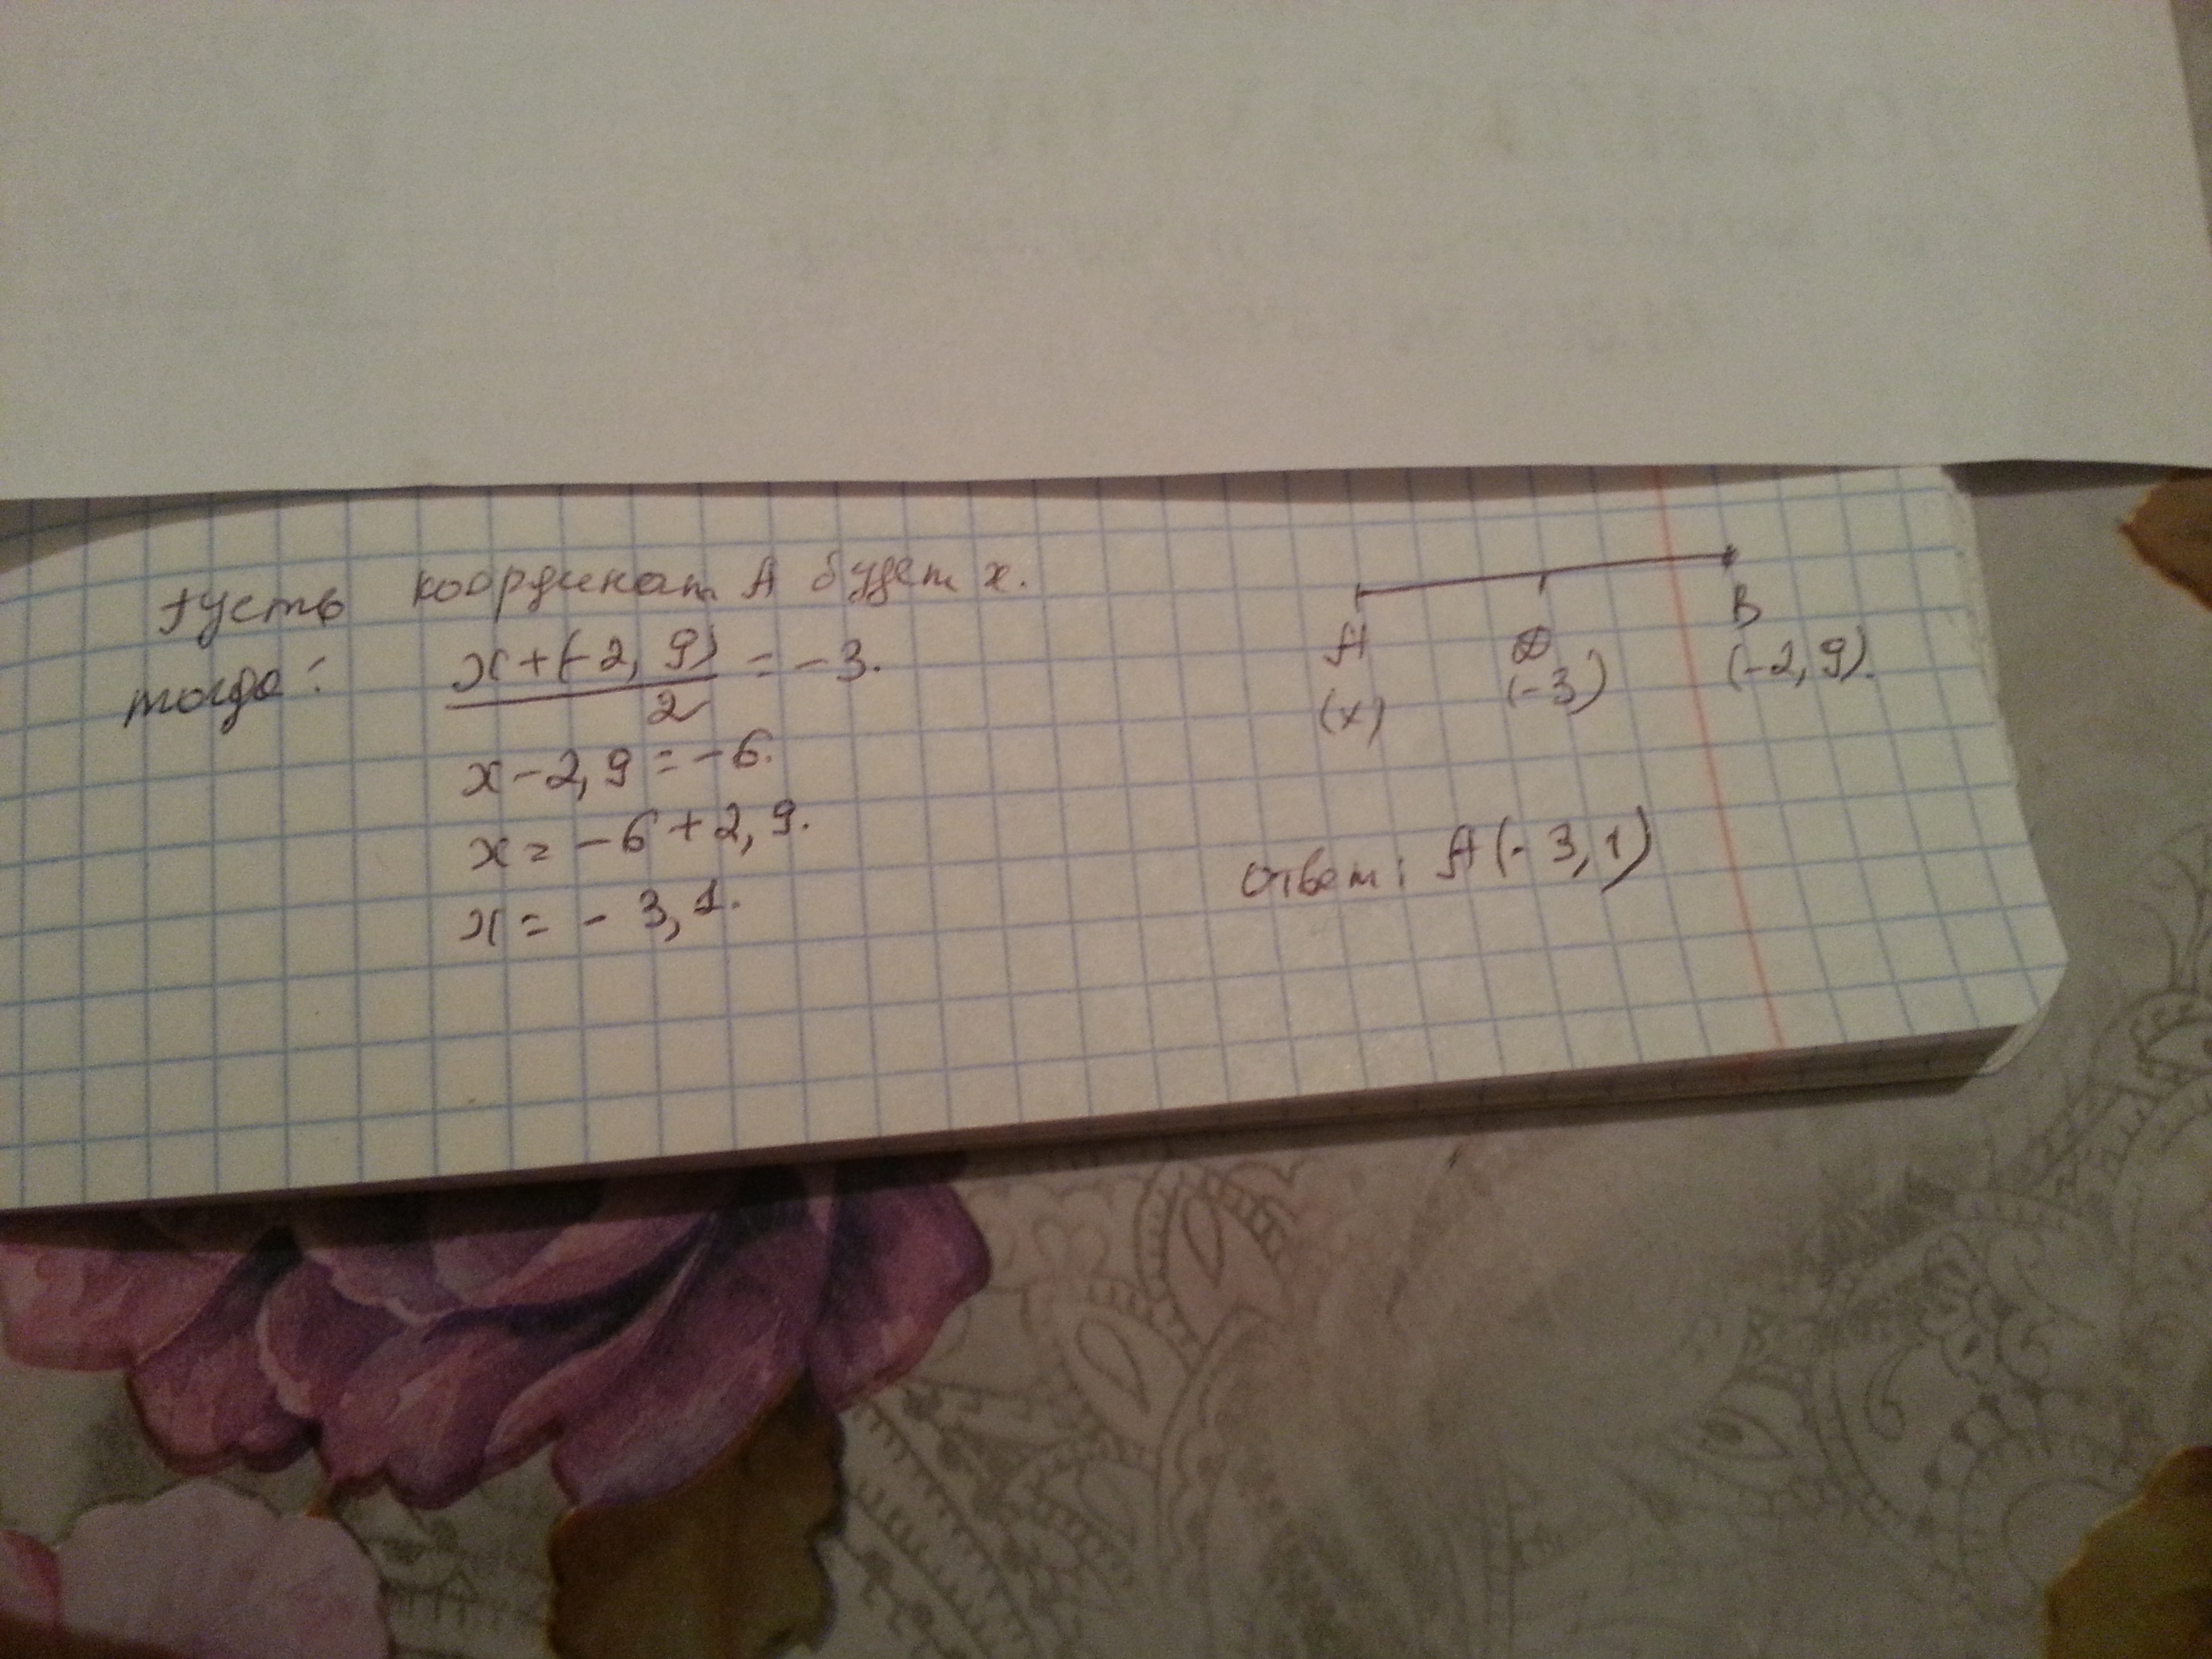 пусть координат А будет х.
тогда: x+(-2,9)/2 = -3.
x-2,9=-6.
x=-6+2,9.
x=-3,1.
А D В
(x) (-3) (-2,9).
ответ: А(-3,1)